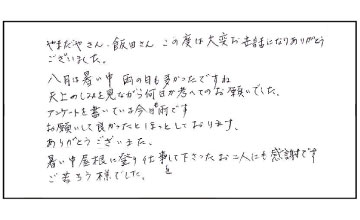 やまだやさん、飯田さん この度は大変お世話になりありがとう
ございました。
八月は暑い中 雨の日も多かったですね
天上のしみを見ながら何日か考えてのお願いでした。
アンケートを書いている今日も雨です
お願いして良かったとほっとしております。
ありがとうございました。
暑い中屋根に登り仕事して下さったお二人にも感謝です
ご苦ろう様でした。